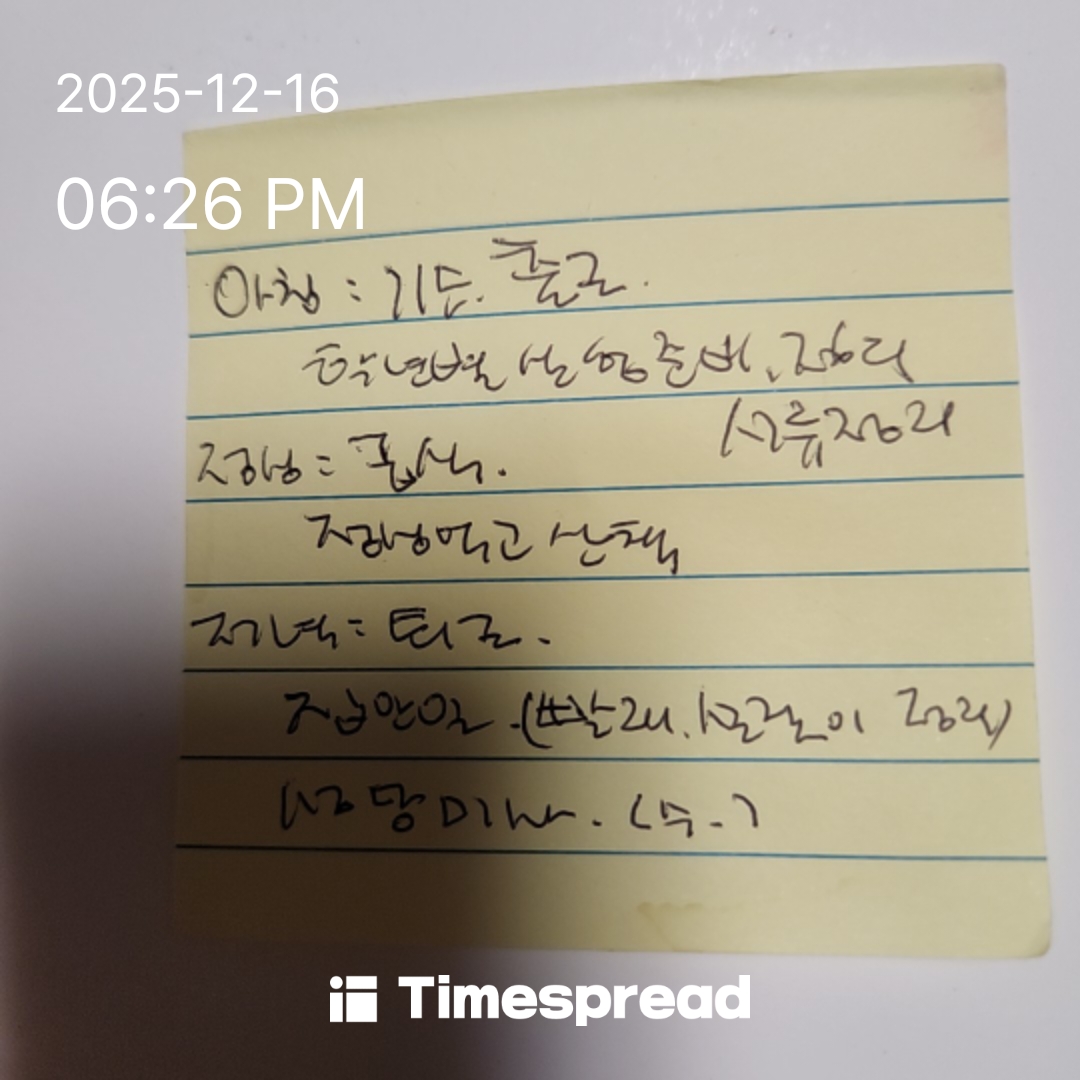 2025-12-16
06:26 PM
아침 : 기도. 출근.
학년별 실험준비, 정리
서류정리
점심 :
점심먹고 산책
저녁 : 퇴근.
집안일. (빨래. 설겆이 정리)
성당미사. (수.)
Timespread